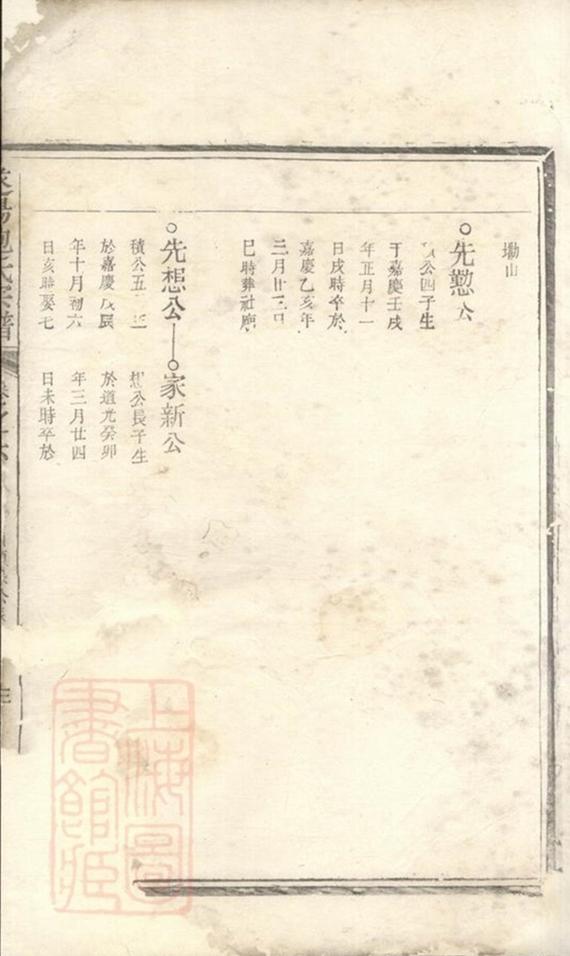 墈山
○先懃公
公四子生
于嘉慶壬戌
年正月十一
日戌時卒於
嘉慶乙亥年
三月廿三日
巳時葬社廟
○先想公—○家新公
積公五子生
於嘉慶戊辰
年十月初六
日亥時娶七
想公長子生
於道光癸卯
年三月廿四
日未時卒於
氏宗譜
上海圖書館藏